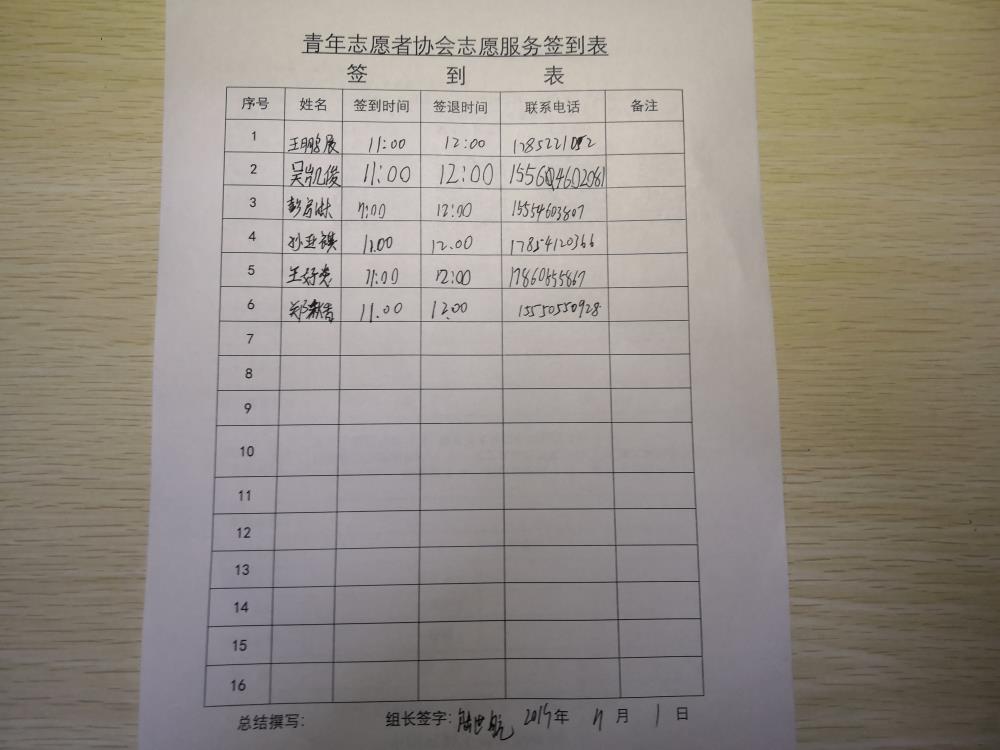 青年志愿者协会志愿服务签到表
签 到 表
序号 姓名 签到时间 签退时间 联系电话 备注
1 王鹏展 11:00 12:00
2 吴凯俊 11:00 12:00
3 11:00 12:00 15554603807
4 孙亚祺 11.00 12.00 17854120366
5 11:00 12:00 17860855867
6 11.00 12:00 15550550928
7
8
9
10
11
12
13
14
15
16
总结撰写: 组长签字: 年 11 月 1 日